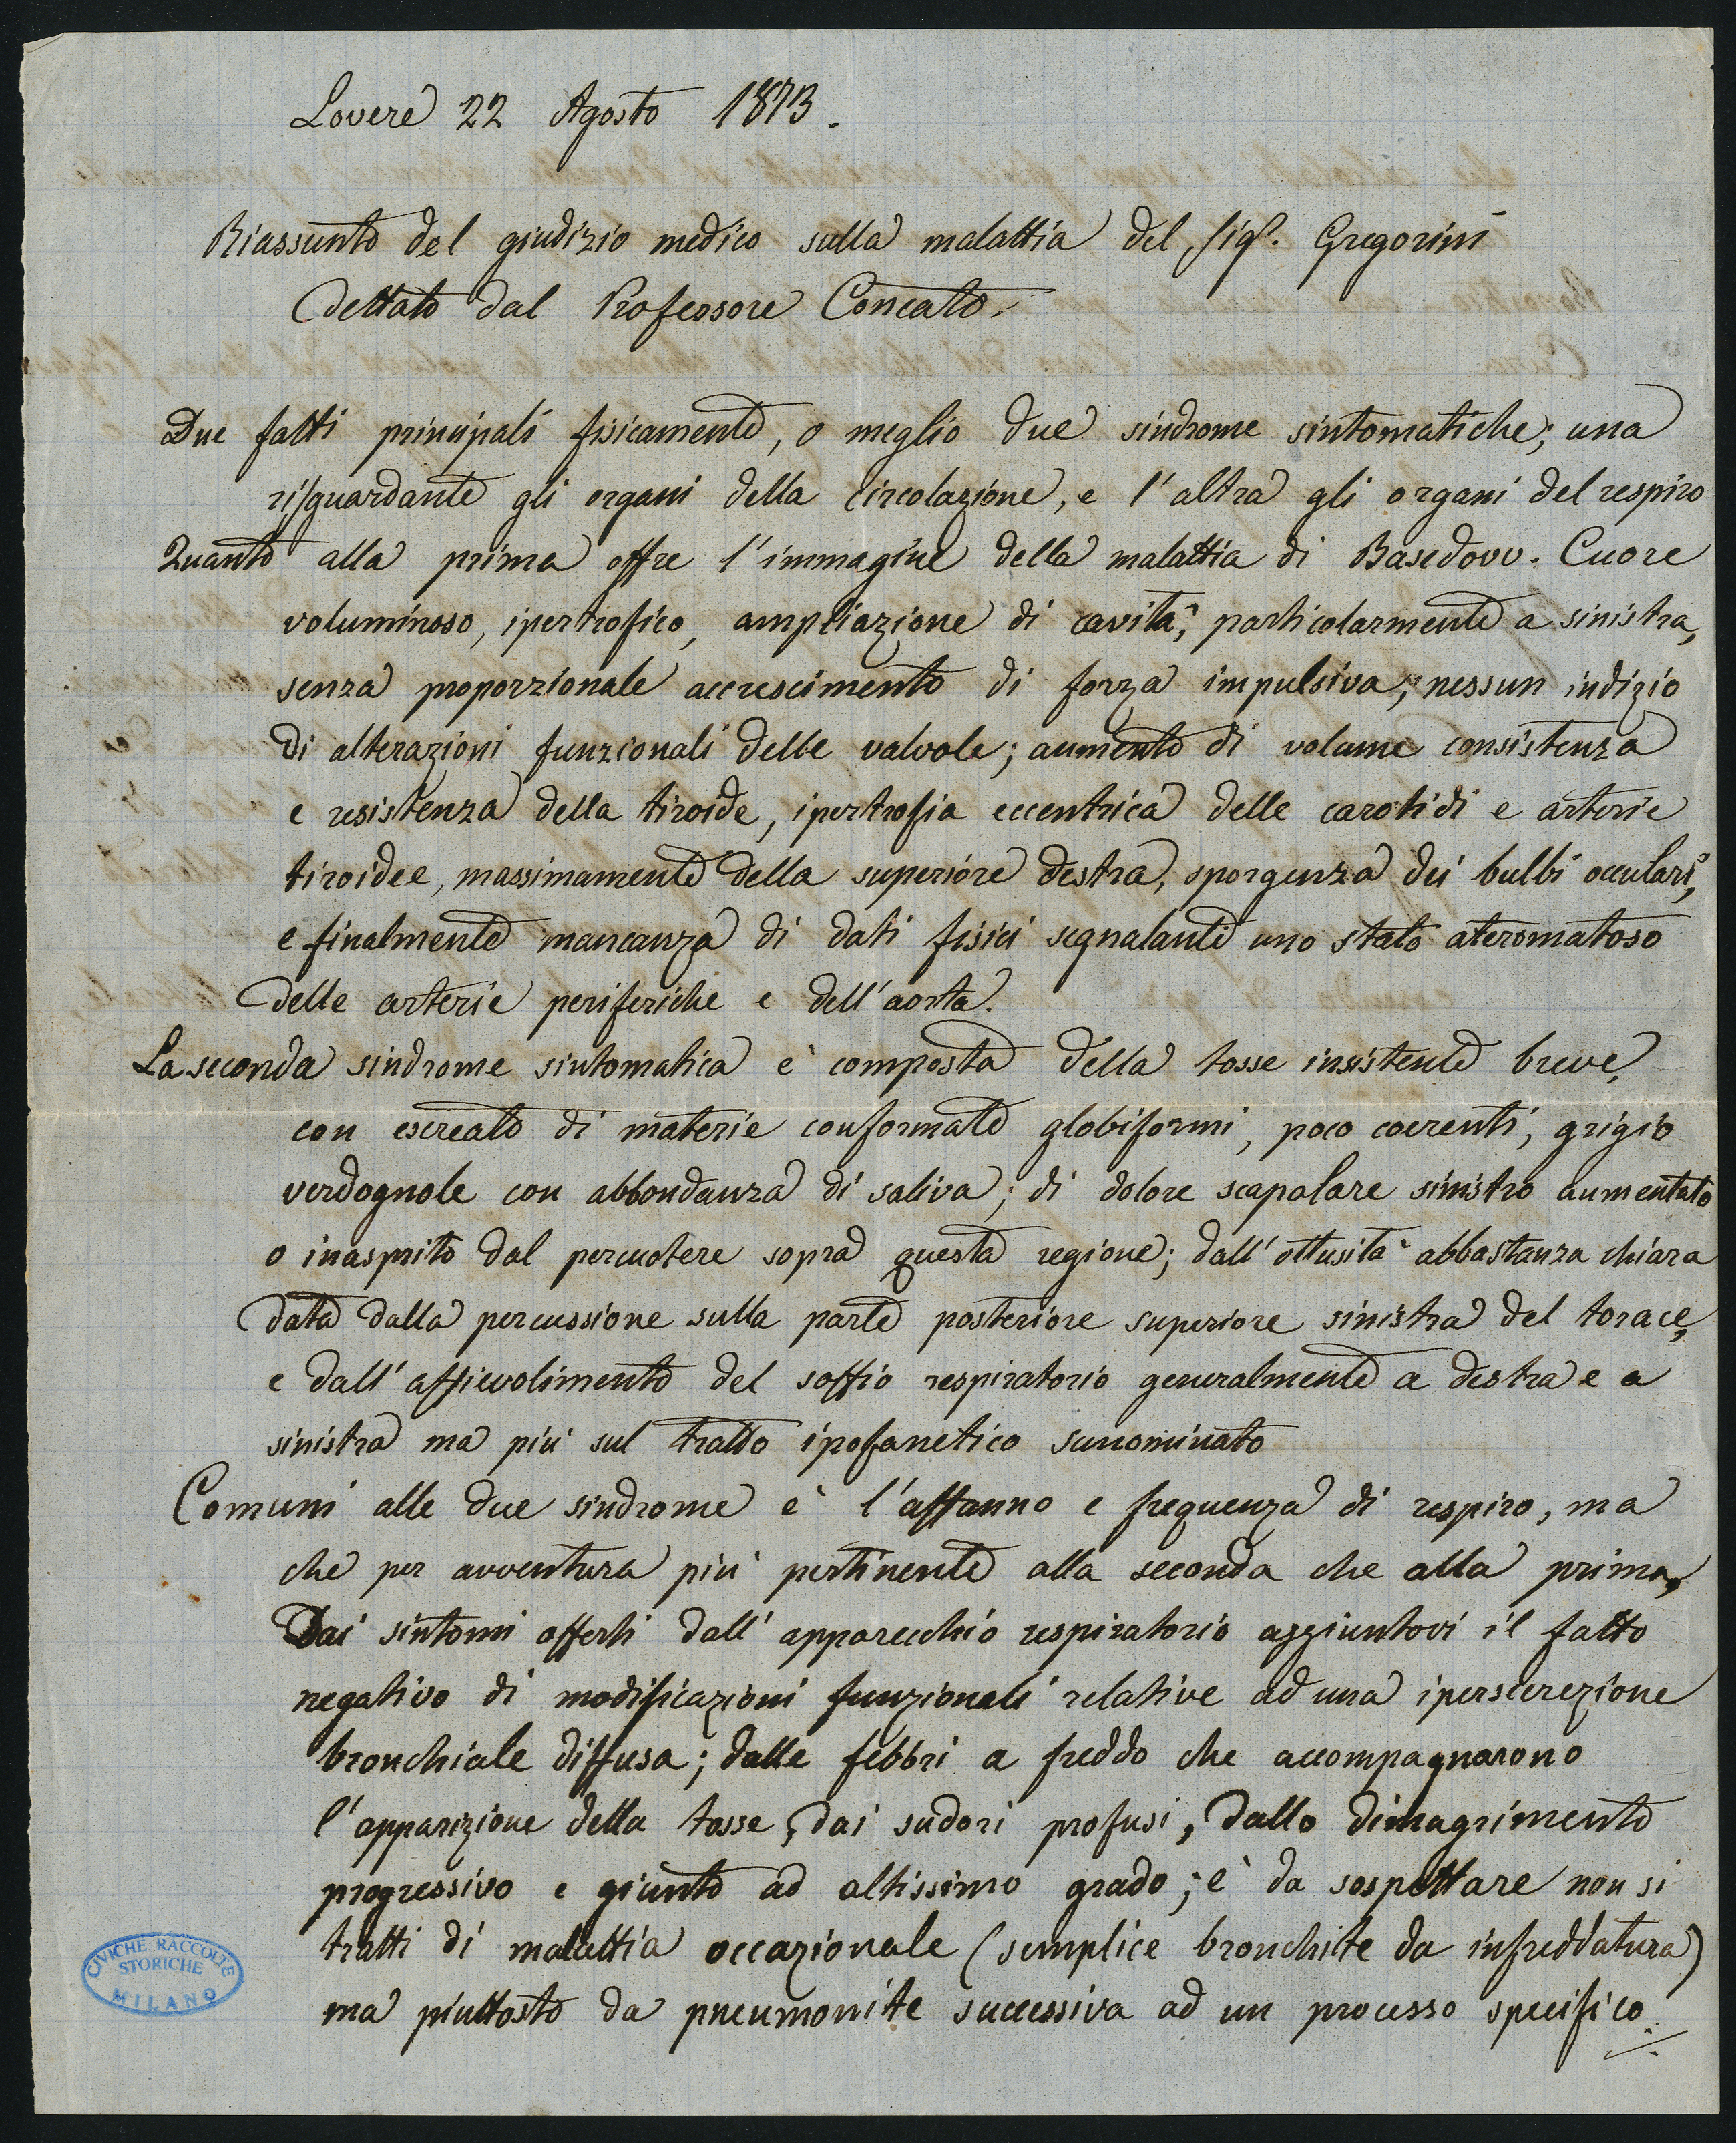 Lovere 22 Agosto 1873.
Riassunto del giudizio medico sulla malattia del sigr. Gregorini
Dettato dal Professore Concato.
Due fatti principali fisicamente, o meglio due sindrome sintomatiche; una
risguardante gli organi della circolazione, e l'altra gli organi del respiro
Quanto alla prima offre l'immagine della malattia di Basedovv. Cuore
voluminoso, ipertrofico, ampliazione di cavità, particolarmente a sinistra,
senza proporzionale accrescimento di forza impulsiva; nessun indizio
di alterazioni funzionali delle valvole; aumento di volume consistenza
e resistenza della tiroide, ipertrofia eccentrica delle carotidi e arterie
tiroidee, massimamente della superiore destra, sporgenza dei bulbi occulari,
e finalmente mancanza di dati fisici segnalanti uno stato ateromatoso
delle arterie periferiche e dell'aorta.
La seconda sindrome sintomatica è composta della tosse insistente breve,
con escreato di materie conformate globiformi, poco coerenti, grigio
verdognole con abbondanza di saliva; di dolore scapolare sinistro aumentato
o inasprito dal percuotere sopra questa regione; dall'ottusità abbastanza chiara
data dalla percussione sulla parte posteriore superiore sinistra del torace,
e dall'affievolimento del soffio respiratorio generalmente a destra e a
sinistra ma più sul tratto ipofanetico sunominato
Comuni alle due sindrome è l'affanno e frequenza di respiro, ma
che per avventura più pertinente alla seconda che alla prima,
Dai sintomi offerti dall'apparecchio respiratorio aggiuntovi il fatto
negativo di modificazioni funzionali relative ad una ipersecrezione
bronchiale diffusa; dalle febbri a freddo che accompagnarono
l'apparizione della tosse, dai sudori profusi, dallo dimagrimento
progressivo e giunto ad altissimo grado; è da sospettare non si
tratti di malattia occazionale (semplice bronchite da infreddatura)
ma piuttosto da pneumonite successiva ad un processo specifico.
CIVICHE RACCOLTE
STORICHE
MILANO